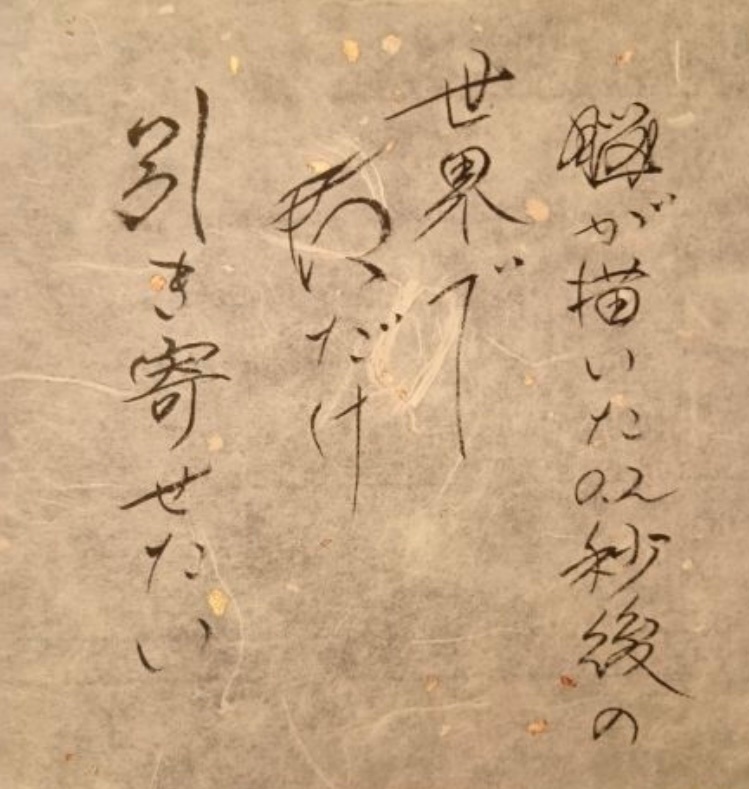 脳が描いた0.2秒後の
世界で
だけ
引き寄せたい